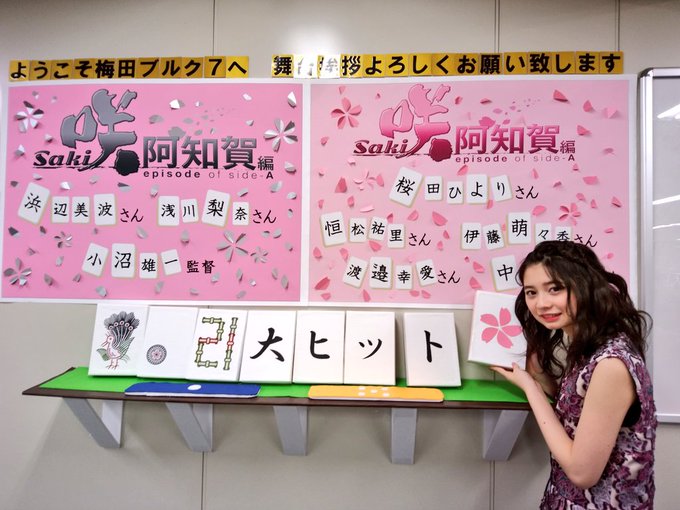 ようこそ梅田ブルク7へ 舞台挨拶よろしくお願い致します
咲
Saki
阿知賀編
episode of side-A
浜辺美波さん 浅川梨奈さん
小沼雄一監督
咲
Saki
阿知賀編
episode of side-A
桜田ひよりさん
恒松祐里さん 伊藤萌々香さん
渡邉幸愛さん 中
大ヒット